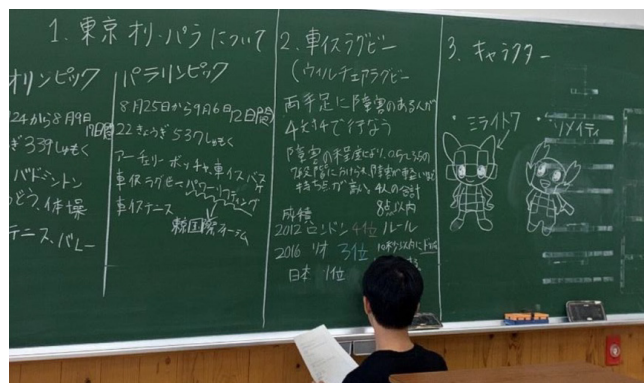 1. 東京オリ・パラについて
オリンピック
24から8月9日
17日間
339しゅもく
バドミントン
どう、体操
テニス、バレー
パラリンピック
8月25日から9月6日 12日間
22きょうぎ 537しゅもく
アーチェリー ボッチャ 車イスバスケ
車イスラグビー パワーリフティング
車イステニス
東京国際フォーラム
2. 車イスラグビー
(ウィルチェアラグビー
両手足に障害のある人が
4対4で行なう
障害の程度により、0.5~3.5の
7段階に分けられ、障害が軽いほど
持ち点が 4人の合計
8点以内
成績
2012 ロンドン 4位 ルール
2016 リオ 3位 10秒以内に
日本 1位
3. キャラクター
・ミライトワ
・ソメイティ